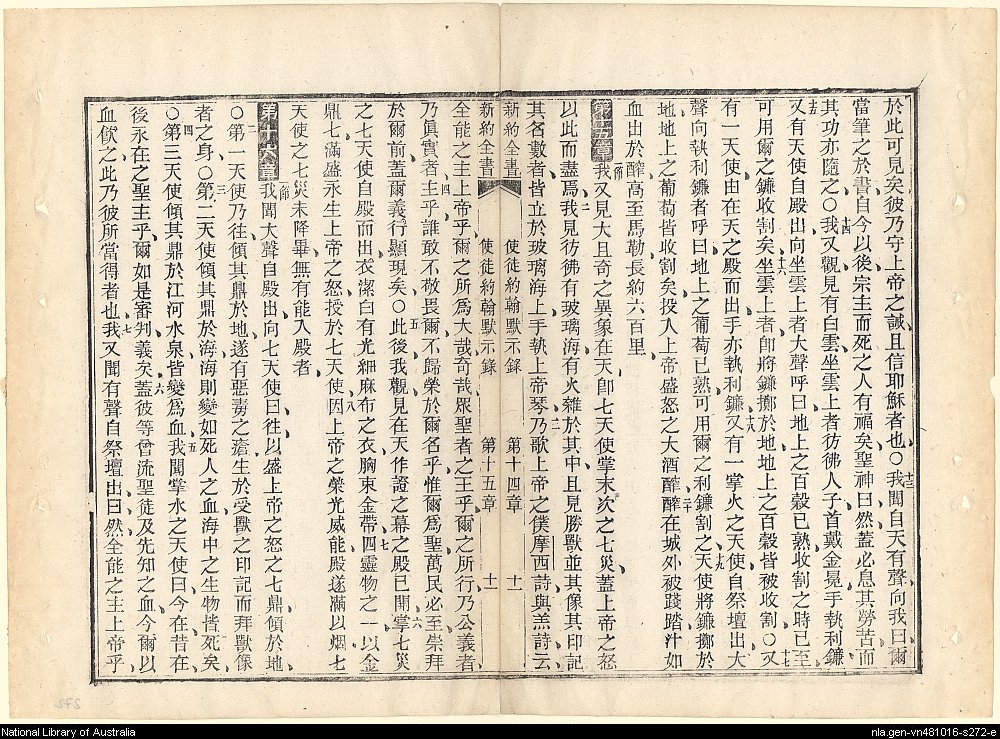 於此可見矣彼乃守上帝之誡且信耶穌者也〇十三我聞自天有聲向我曰爾
當筆之於書自今以後宗主而死之人有福矣聖神曰然蓋必息其勞苦而
其功亦隨之〇十四我又觀見有白雲坐雲上者彷彿人子首戴金冕手執利鐮
十五又有天使自殿出向坐雲上者大聲呼曰地上之百穀已熟收割之時已至
可用爾之鐮收割矣十六坐雲上者即將鐮擲於地地上之百穀皆被收割〇十七又
有一天使由在天之殿而出手亦執利鐮十八又有一掌火之天使自祭壇出大
聲向執利鐮者呼曰地上之葡萄已熟可用爾之利鐮割之十九天使將鐮擲於
地地上之葡萄皆收割矣投入上帝盛怒之大酒醡二十醡在城外被踐踏汁如
血出於醡高至馬勒長約六百里
第十五章一節我又見大且奇之異象在天即七天使掌末次之七災蓋上帝之怒
以此而盡焉二我見彷彿有玻璃海有火雜於其中且見勝獸並其像其印記
其名數者皆立於玻璃海上手執上帝琴三乃歌上帝之僕摩西詩與羔詩云
新約全書 使徒約翰默示錄 第十四章 十一
新約全書 使徒約翰默示錄 第十五章 十一
全能之主上帝乎爾之所爲大哉奇哉眾聖者之王乎爾之所行乃公義者
乃眞實者四主乎誰敢不敬畏爾不歸榮於爾名乎惟爾爲聖萬民必至崇拜
於爾前蓋爾義行顯現矣〇五此後我觀見在天作證之幕之殿已開六掌七災
之七天使自殿而出衣潔白有光細麻布之衣胸束金帶七四靈物之一以金
鼎七滿盛永生上帝之怒授於七天使八因上帝之榮光威能殿遂滿以烟七
天使之七災未降畢無有能入殿者
第十六章一節我聞大聲自殿出向七天使曰徃以盛上帝之怒之七鼎傾於地
〇二第一天使乃徃傾其鼎於地遂有惡毒之瘡生於受獸之印記而拜獸像
者之身〇三第二天使傾其鼎於海海則變如死人之血海中之生物皆死矣
〇四第三天使傾其鼎於江河水泉皆變爲血五我聞掌水之天使曰今在昔在
後永在之聖主乎爾如是審判義矣六蓋彼等曾流聖徒及先知之血今爾以
血飲之此乃彼所當得者也七我又聞有聲自祭壇出曰然全能之主上帝乎
272
National Library of Australia
nla.gen-vn481016-s272-e